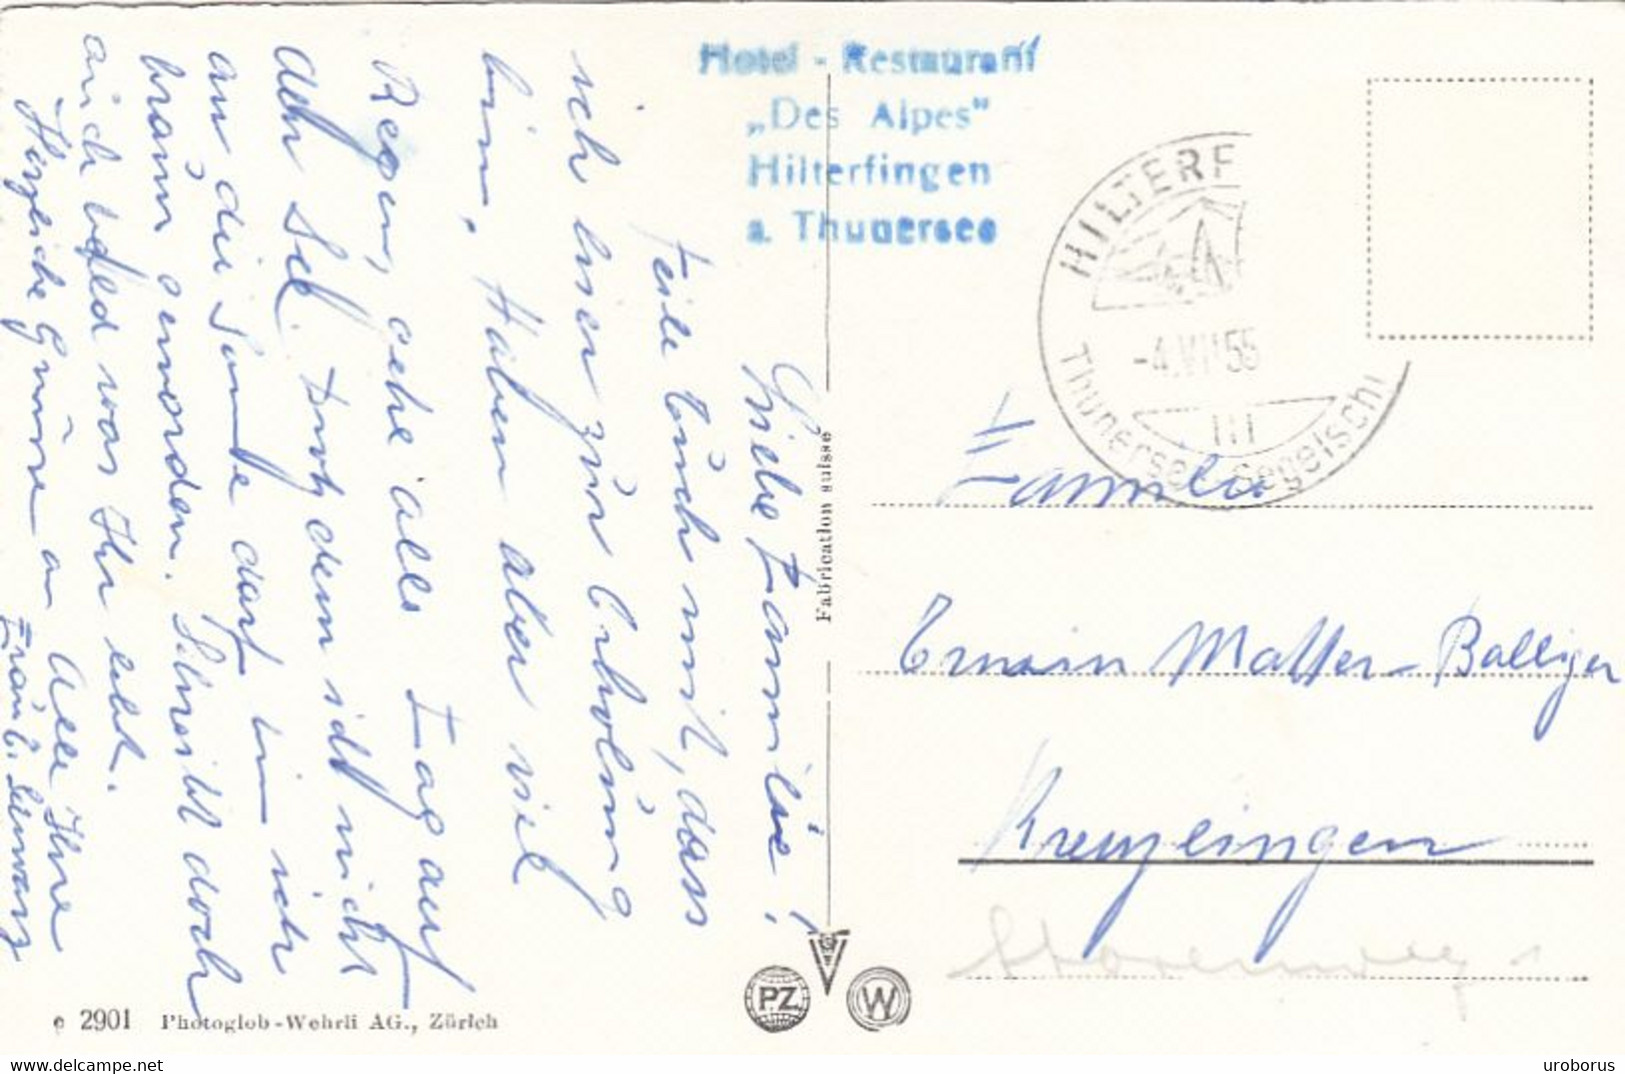 Hotel - Restaurant
„Des Alpes"
Hilterfingen
a. Thunersee
HILTERF
-4.VII 55
III
Thunersee Segelsch
Liebe Familie!
Teile Euch mit, dass
ich hier zur Erholung
bin. Haben aber viel
Regen, gehe alle Tag auf
den See. Trotzdem ich nicht
an die Sonne darf bin ich
braun geworden. Schreibt doch
auch bald was Ihr lebt.
Herzliche Grüsse an Alle Ihre
Frau E. Schwarz
Familie
Erwin Matter-Balliger
Kreuzlingen
Fabrication suisse
PZ
W
e 2901 Photoglob-Wehrli AG., Zürich
www.delcampe.net
uroborus